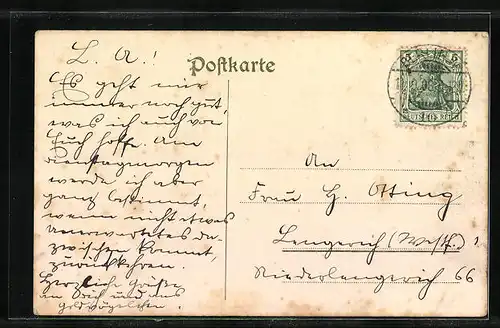 L. A.!
Es geht mir
immer noch gut,
was ich auch von
Euch hoffe. Am
Dienstagmorgen
werde ich aber
ganz bestimmt,
wenn nicht etwas
unerwartetes da-
zwischen kommt,
zurückkehren.
Herzliche Grüße
an Dich und das
Postkarte
5 5
DEUTSCHES REICH
An
Frau H. Otting
Lengerich (Westf.)
Niederlengerich 66